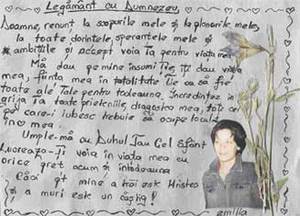 Legământ cu Dumnezeu
Doamne, renunț la scopurile mele și la planurile mele,
la toate dorințele, speranțele mele și
ambițiile și accept voia Ta pentru viața mea
Mă dau pe mine însumi Ție, îți dau viața
mea, ființa mea în totalitate Ție ca să fie
toate ale Tale pentru totdeauna. Încredințez în
grija Ta toate prieteniile, dragostea mea, toți cei
pe care-i iubesc trebuie să ocupe locul
în mea.
Umple-mă cu Duhul Tău Cel Sfânt
Lucrează-Ți voia în viața mea cu
orice preț acum și întodeauna
Căci pt mine a trăi esk Hristos
și a muri esk un câștig!
emilia